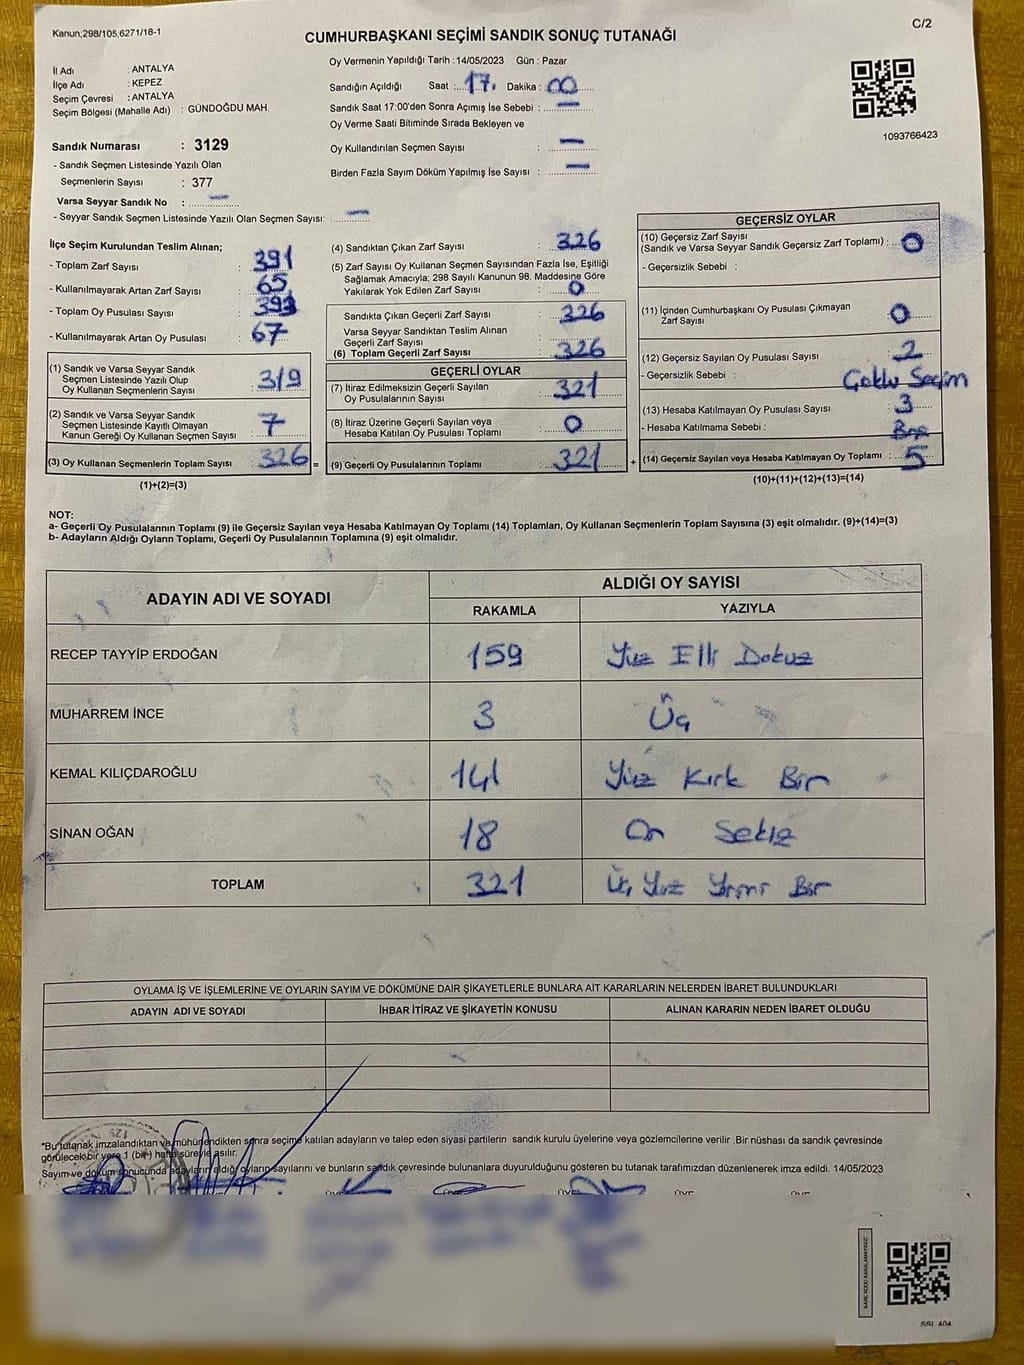 Kanun;298/105;6271/18-1
C/2
CUMHURBAŞKANI SEÇİMİ SANDIK SONUÇ TUTANAĞI
İl Adı : ANTALYA
İlçe Adı : KEPEZ
Seçim Çevresi : ANTALYA
Seçim Bölgesi (Mahalle Adı) : GÜNDOĞDU MAH.
Sandık Numarası : 3129
- Sandık Seçmen Listesinde Yazılı Olan
Seçmenlerin Sayısı : 377
Varsa Seyyar Sandık No : —
- Seyyar Sandık Seçmen Listesinde Yazılı Olan Seçmen Sayısı: —
Oy Vermenin Yapıldığı Tarih :14/05/2023 Gün : Pazar
Sandığın Açıldığı Saat : 17. Dakika : 00
Sandık Saat 17:00'den Sonra Açımış İse Sebebi : —
Oy Verme Saati Bitiminde Sırada Bekleyen ve
Oy Kullandırılan Seçmen Sayısı : —
Birden Fazla Sayım Döküm Yapılmış İse Sayısı : —
1093766423
İlçe Seçim Kurulundan Teslim Alınan;
- Toplam Zarf Sayısı : 391
- Kullanılmayarak Artan Zarf Sayısı : 65
- Toplam Oy Pusulası Sayısı : 393
- Kullanılmayarak Artan Oy Pusulası : 67
(1) Sandık ve Varsa Seyyar Sandık
Seçmen Listesinde Yazılı Olup
Oy Kullanan Seçmenlerin Sayısı : 319
(2) Sandık ve Varsa Seyyar Sandık
Seçmen Listesinde Kayıtlı Olmayan
Kanun Gereği Oy Kullanan Seçmen Sayısı : 7
(3) Oy Kullanan Seçmenlerin Toplam Sayısı : 326 =
(1)+(2)=(3)
(4) Sandıktan Çıkan Zarf Sayısı : 326
(5) Zarf Sayısı Oy Kullanan Seçmen Sayısından Fazla İse, Eşitliği
Sağlamak Amacıyla; 298 Sayılı Kanunun 98. Maddesine Göre
Yakılarak Yok Edilen Zarf Sayısı : 0
Sandıkta Çıkan Geçerli Zarf Sayısı : 326
Varsa Seyyar Sandıktan Teslim Alınan
Geçerli Zarf Sayısı :
(6) Toplam Geçerli Zarf Sayısı : 326
GEÇERLİ OYLAR
(7) İtiraz Edilmeksizin Geçerli Sayılan
Oy Pusulalarının Sayısı : 321
(8) İtiraz Üzerine Geçerli Sayılan veya
Hesaba Katılan Oy Pusulası Toplamı : 0
(9) Geçerli Oy Pusulalarının Toplamı : 321 +
GEÇERSİZ OYLAR
(10) Geçersiz Zarf Sayısı
(Sandık ve Varsa Seyyar Sandık Geçersiz Zarf Toplamı) : 0
- Geçersizlik Sebebi :
(11) İçinden Cumhurbaşkanı Oy Pusulası Çıkmayan
Zarf Sayısı : 0
(12) Geçersiz Sayılan Oy Pusulası Sayısı : 2
- Geçersizlik Sebebi : Çoklu Seçim
(13) Hesaba Katılmayan Oy Pusulası Sayısı : 3
- Hesaba Katılmama Sebebi : Boş
(14) Geçersiz Sayılan veya Hesaba Katılmayan Oy Toplamı : 5
(10)+(11)+(12)+(13)=(14)
NOT:
a- Geçerli Oy Pusulalarının Toplamı (9) ile Geçersiz Sayılan veya Hesaba Katılmayan Oy Toplamı (14) Toplamları, Oy Kullanan Seçmenlerin Toplam Sayısına (3) eşit olmalıdır. (9)+(14)=(3)
b- Adayların Aldığı Oyların Toplamı, Geçerli Oy Pusulalarının Toplamına (9) eşit olmalıdır.
ADAYIN ADI VE SOYADI
ALDIĞI OY SAYISI
RAKAMLA YAZIYLA
RECEP TAYYİP ERDOĞAN 159 Yüz Elli Dokuz
MUHARREM İNCE 3 Üç
KEMAL KILIÇDAROĞLU 141 Yüz Kırk Bir
SİNAN OĞAN 18 On Sekiz
TOPLAM 321 Üç Yüz Yirmi Bir
OYLAMA İŞ VE İŞLEMLERİNE VE OYLARIN SAYIM VE DÖKÜMÜNE DAİR ŞİKAYETLERLE BUNLARA AİT KARARLARIN NELERDEN İBARET BULUNDUKLARI
ADAYIN ADI VE SOYADI İHBAR İTİRAZ VE ŞİKAYETİN KONUSU ALINAN KARARIN NEDEN İBARET OLDUĞU
*Bu tutanak imzalandıktan ve mühürlendikten sonra seçime katılan adayların ve talep eden siyasi partilerin sandık kurulu üyelerine veya gözlemcilerine verilir .Bir nüshası da sandık çevresinde
görülecek bir yere 1 (bir) hafta süreyle asılır.
Sayım ve döküm sonucunda adayların aldığı oyların sayılarını ve bunların sandık çevresinde bulunanlara duyurulduğunu gösteren bu tutanak tarafımızdan düzenlenerek imza edildi. 14/05/2023